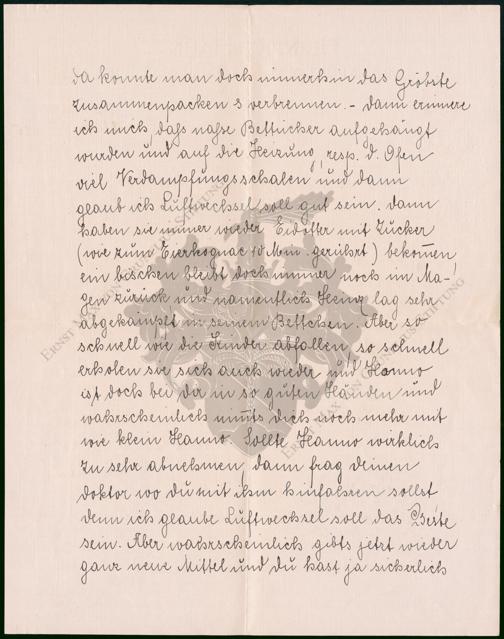 da konnte man doch immerhin das Gröbste
zusammenpacken & verbrennen. – dann erinnere
ich mich, daſs naſse Bettücher aufgehängt
wurden und auf die Heizung, resp. d. Ofen
viel Verdampfungsschalen, und dann
glaub ich Luftwechsel soll gut sein. dann
haben sie immer wieder Eidotter mit Zucker
(wie zum Eierkognac 10 Min. gerührt) bekom̅en
ein bischen bleibt doch immer noch im Ma-
gen zurück und namentlich Heinz lag sehr
abgekämpft in seinem Bettchen. Aber so
schnell wie die Kinder abfallen, so schnell
erholen sie sich auch wieder und Hanno
ist doch bei dir in so guten Händen und
wahrscheinlich nim̅ts dich noch mehr mit
wie klein Hanno. Sollte Hanno wirklich
zu sehr abnehmen, dann frag deinen
doktor wo du mit ihm hinfahren sollst
denn ich glaube Luftwechsel soll das Beste
sein. Aber wahrscheinlich gibts jetzt wieder
ganz neue Mittel und du hast ja sicherlich
ERNST MAX VON GRUNELIUS-STIFTUNG
ERNST MAX VON GRUNELIUS-STIFTUNG